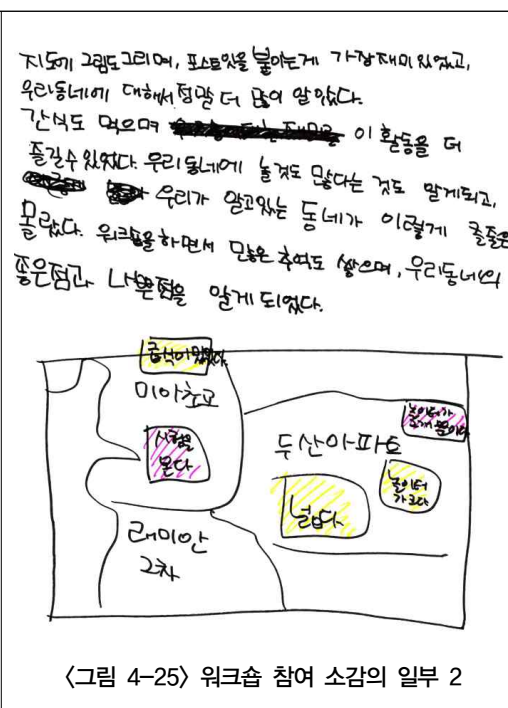 지도에 그림도 그리며, 포스트잇을 붙이는게 가장 재미있었고,
우리동네에 대해서 정말 더 많이 알았다.
간식도 먹으며 이 활동을 더
즐길수 있었다. 우리동네에 놀것도 많다는 것도 알게되고,
우리가 알고있는 동네가 이렇게
몰랐다. 워크숍을 하면서 많은 추억도 쌓으며, 우리동네의
좋은점과 나쁜점을 알게 되었다.
급식이 맛있다.
미아초교
시험을
본다
두산아파트
놀이터가
놀이터
가 크다
넓다
래미안
2차
<그림 4-25> 워크숍 참여 소감의 일부 2